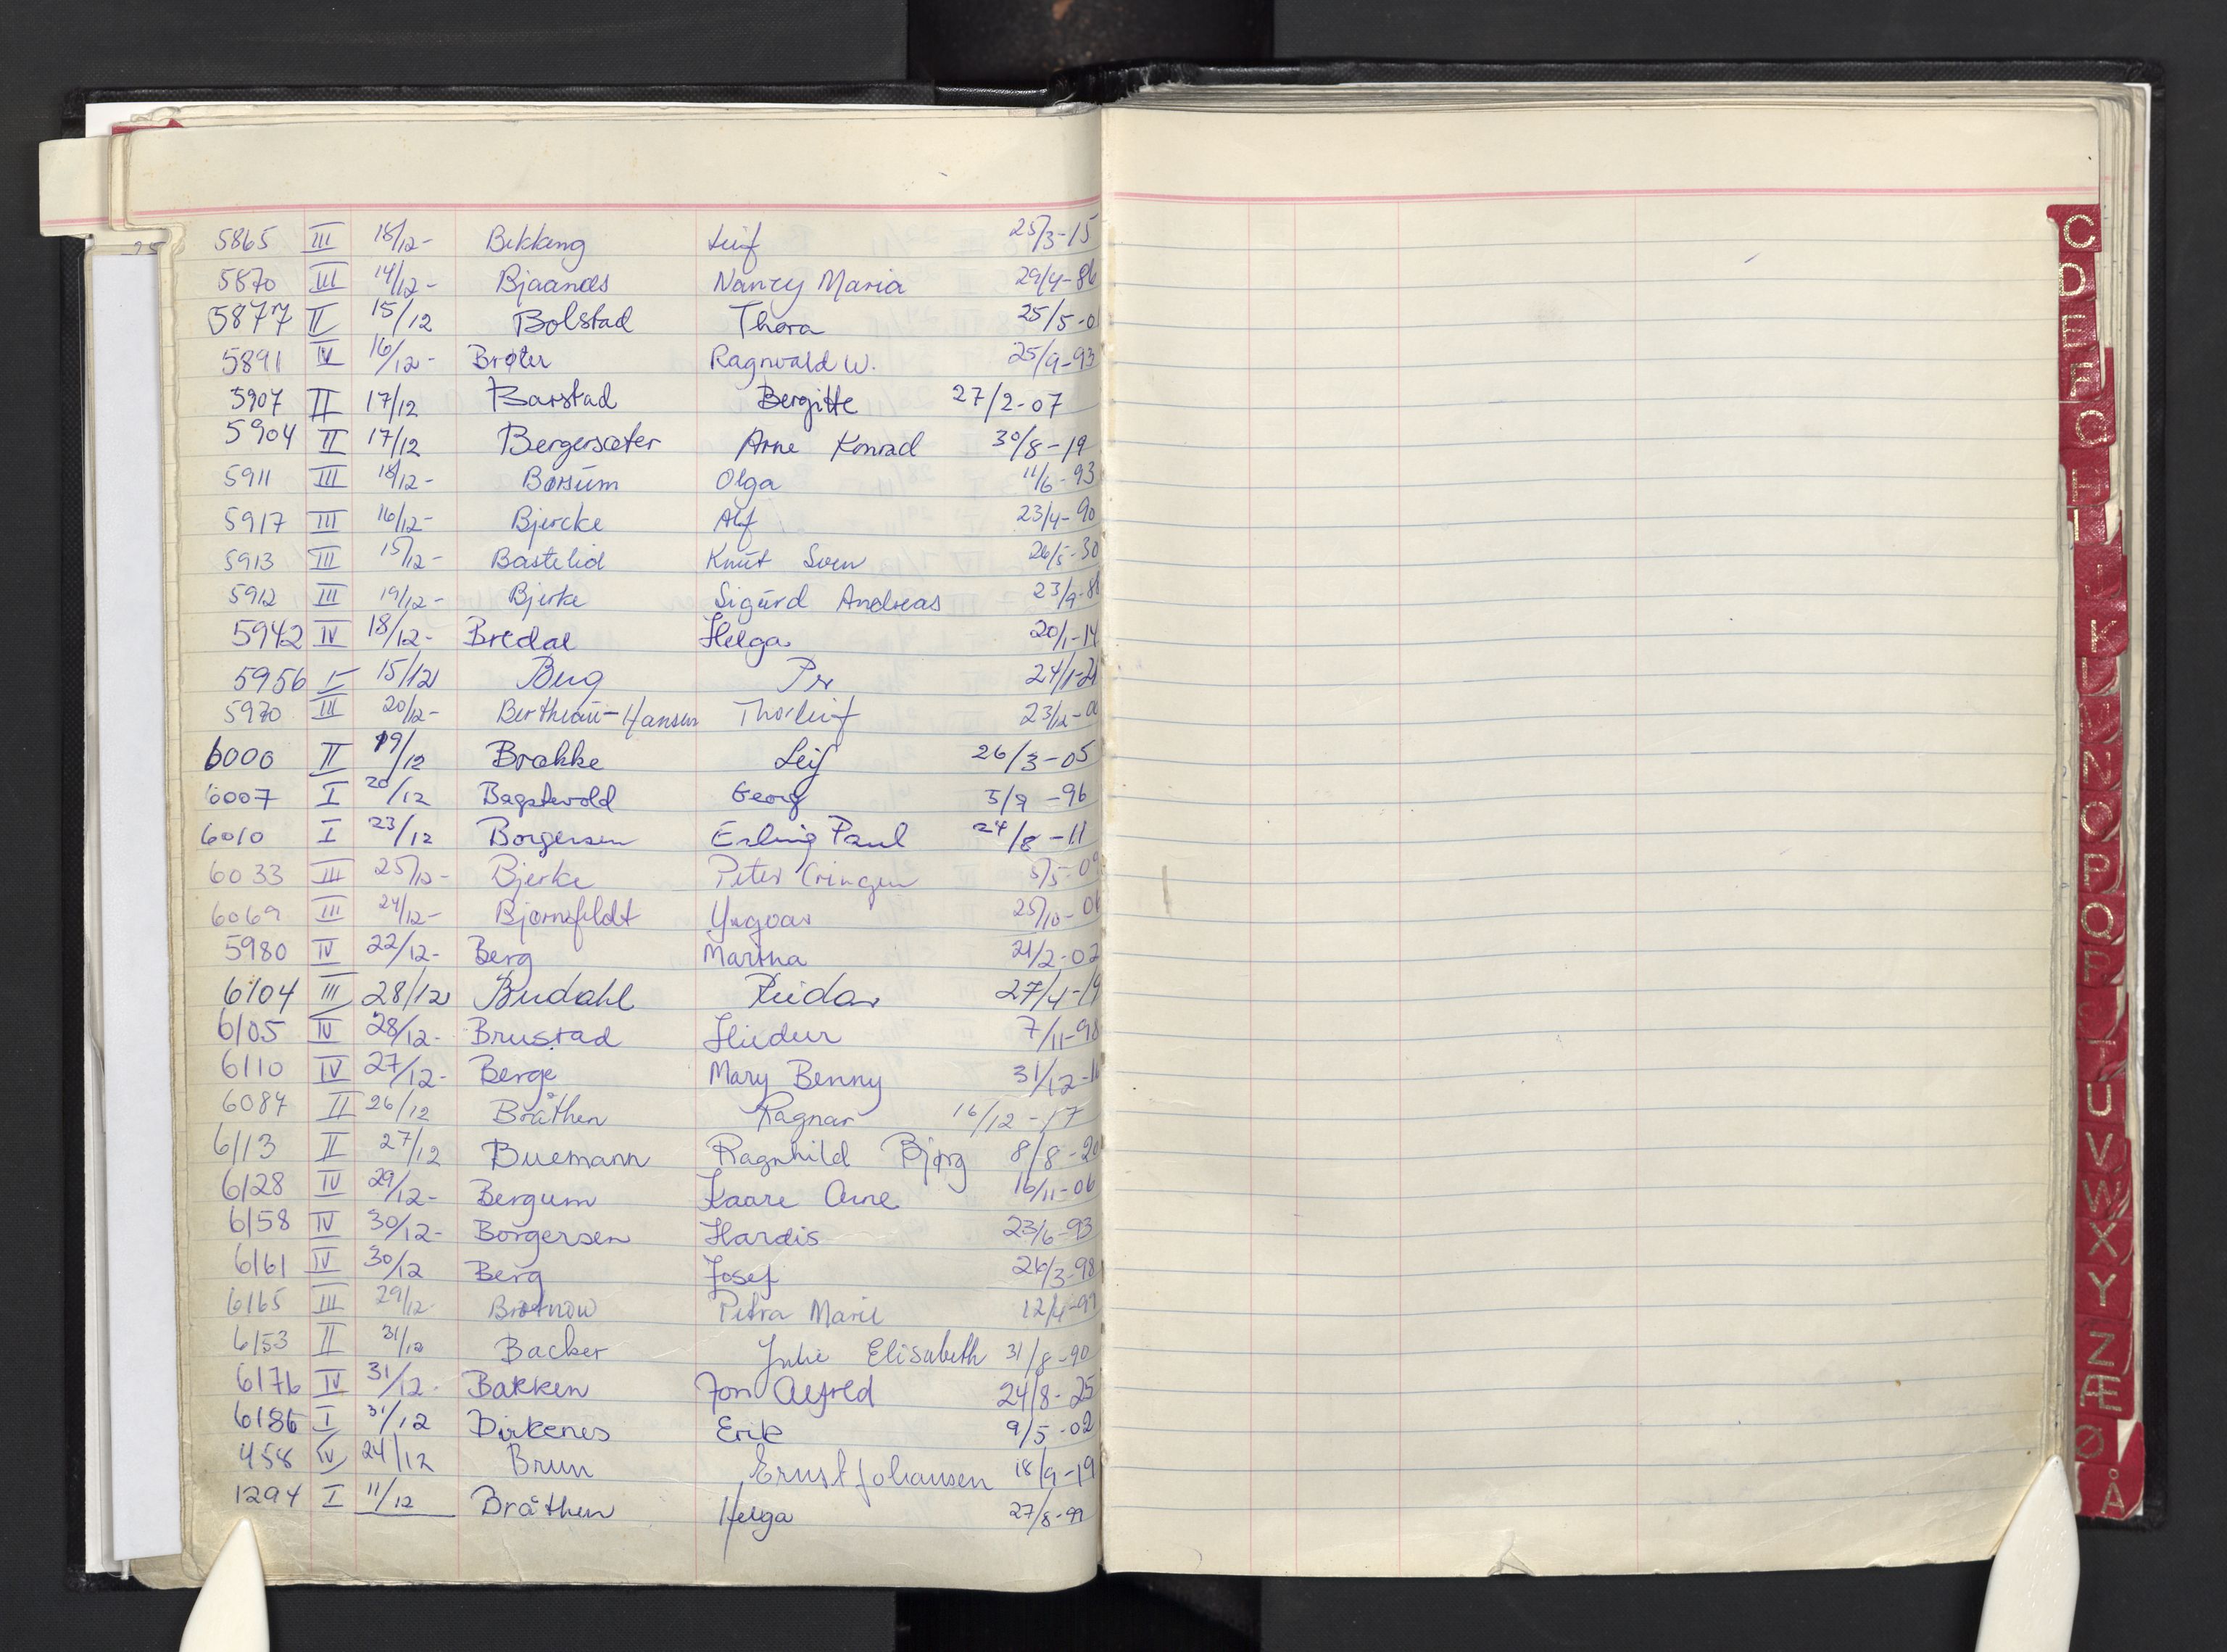 5865 III 18/12- Bekkeng Leif 25/3-15
5870 III 14/12- Bjaanæs Nancy Maria 29/4-86
5877 II 15/12 Bolstad Thora 25/5-0
5891 IV 16/12- Brøter Ragnvald W. 25/9-93
5907 II 17/12 Barstad Bergitte 27/2-07
5904 II 17/12 Bergersæter Arne Konrad 30/8-19
5911 III 18/12- Børsum Olga 11/6-93
5917 III 16/12- Bjercke Alf 23/4-90
5913 III 15/12- Bastelid Knut Sven 26/5-30
5912 III 19/12- Bjerke Sigurd Andreas 23/9-88
5942 IV 18/12- Bredal Helga 20/1-14
5956 I 15/12 Berg Per 24/1-21
5970 III 20/12- Bertheau-Hansen Thorleif 23/12-0
6000 II 19/12 Brække Leif 26/3-05
6007 I 20/12 Bagstevold Georg 5/7-96
6010 I 23/12 Borgersen Erling Paul 24/8-11
6033 III 25/12- Bjerke Peter 5/5-09
6069 III 24/12- Bjørnsfeldt Yngvar 25/10-01
5980 IV 22/12- Berg Martha 21/2-02
6104 III 28/12 Budahl Reidar 27/4-19
6105 IV 28/12- Brustad 7/11-98
6110 IV 27/12- Berge Mary Benny 31/12-1
6087 II 26/12 Bråthen Ragnar 16/12-17
6113 II 27/12 Buemann Ragnhild Bjørg 8/8-20
6128 IV 29/12- Bergum Kaare Arne 16/11-06
6158 IV 30/12- Borgersen Hardis 23/6-93
6161 IV 30/12 Berg Josef 26/3-98
6165 III 29/12 Petra Marie 12/4-97
6153 II 31/12 Backer Julie Elisabeth 31/8-90
6176 IV 31/12- Bakken Jon Alfred 24/8-25
6186 I 31/12 Birkenes Erik 9/5-02
458 IV 24/12 Brun Ernst Johansen 18/9-19
1294 I 11/12 Bråthen Helga 27/8-99
C
D
E
F
G
H
I
J
K
L
M
N
O
P
Q
R
S
T
U
V
W
X
Y
Z
Æ
Ø
Å